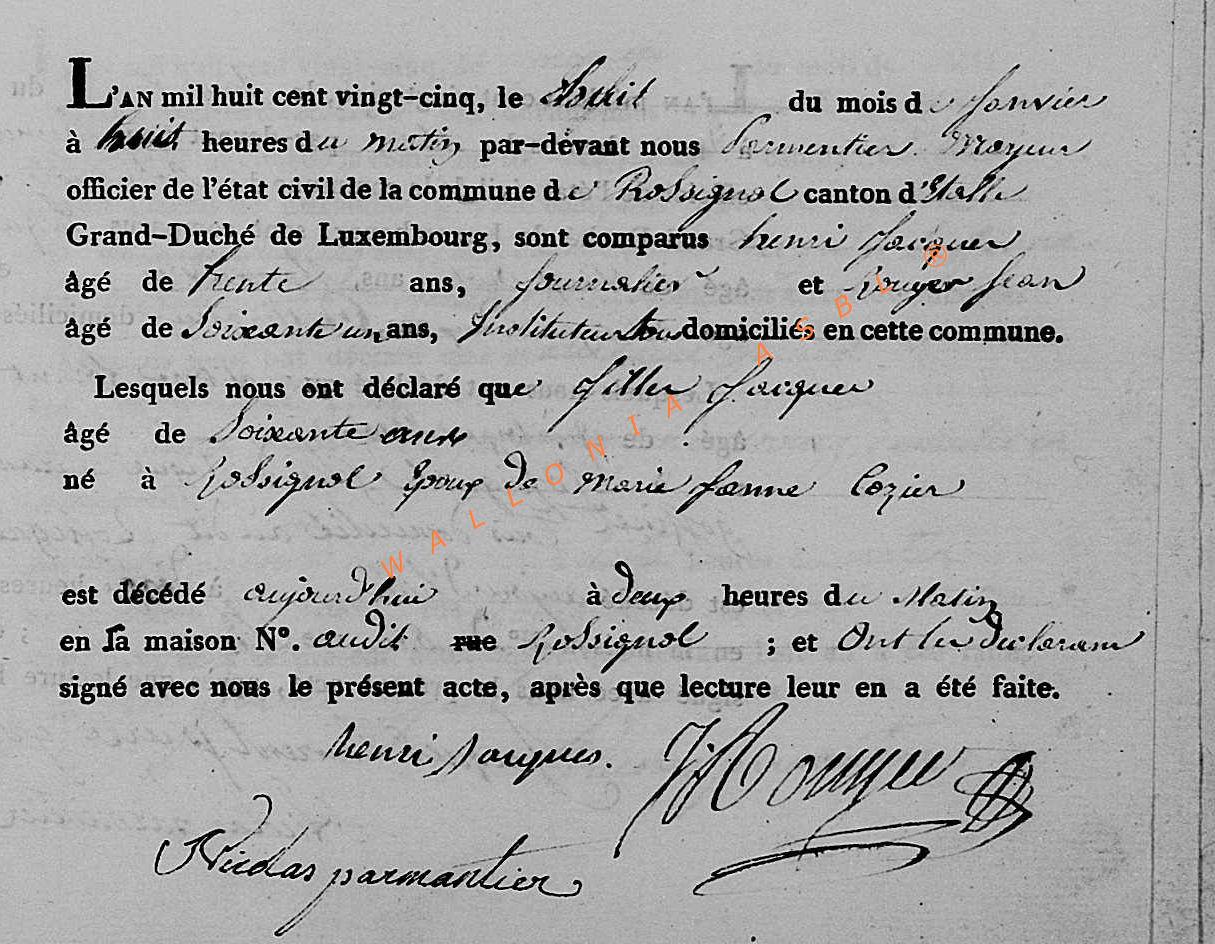 L'AN mil huit cent vingt-cinq, le huit du mois de Janvier
à huit heures du matin par-devant nous Parmentier Mayeur
officier de l'état civil de la commune de Rossignol canton d'Etalle
Grand-Duché de Luxembourg, sont comparus henri Jacques
âgé de trente ans, Journalier et Rouyer Jean
âgé de Soixante un ans, Instituteur tous domiciliés en cette commune.
Lesquels nous ont déclaré que Jacques
âgé de Soixante ans
né à Rossignol Epoux de Marie Janne Cozier
est décédé aujourd'hui à deux heures du Matin
en sa maison N°. audit rue Rossignol ; et Ont les declarans
signé avec nous le présent acte, après que lecture leur en a été faite.
henri Jacques.
J Rouyer
Nicolas parmantier
WALLONIA ASBL ®